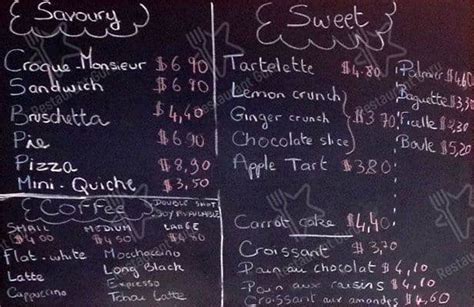 Savoury
Croque-Monsieur $6.90
Sandwich
Bruschetta $4,40
Pie $6.90
Pizza $8,90
Mini-Quiche $3,50
Coffee
DOUBLE SHOT
SOY AVAILABLE
SMALL MEDIUM LARGE
$4.00 $4.50
flat-white Mochaccino
Latte Long Black
Cappuccino Espresso
Latte
Sweet
Tartelette $4.80
Lemon crunch
Ginger crunch
Chocolate slice
Apple Tart $3.80
Palmier $4.60
Baguette
Ficelle $2,30
Boule $5,20
Carrot cake $4,40
Croissant $3,70
Pain au chocolat $4,10
Pain aux raisins $4,10
Croissant aux amandes
Restaurant Guru